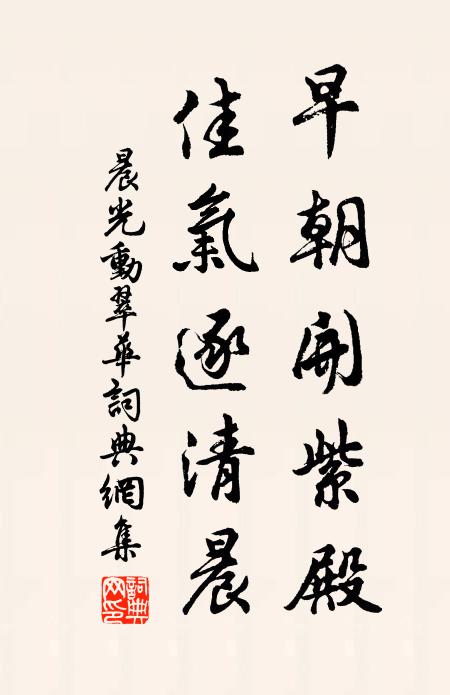 早朝開紫殿
佳氣逐清晨
晨光動翠華詞典網集